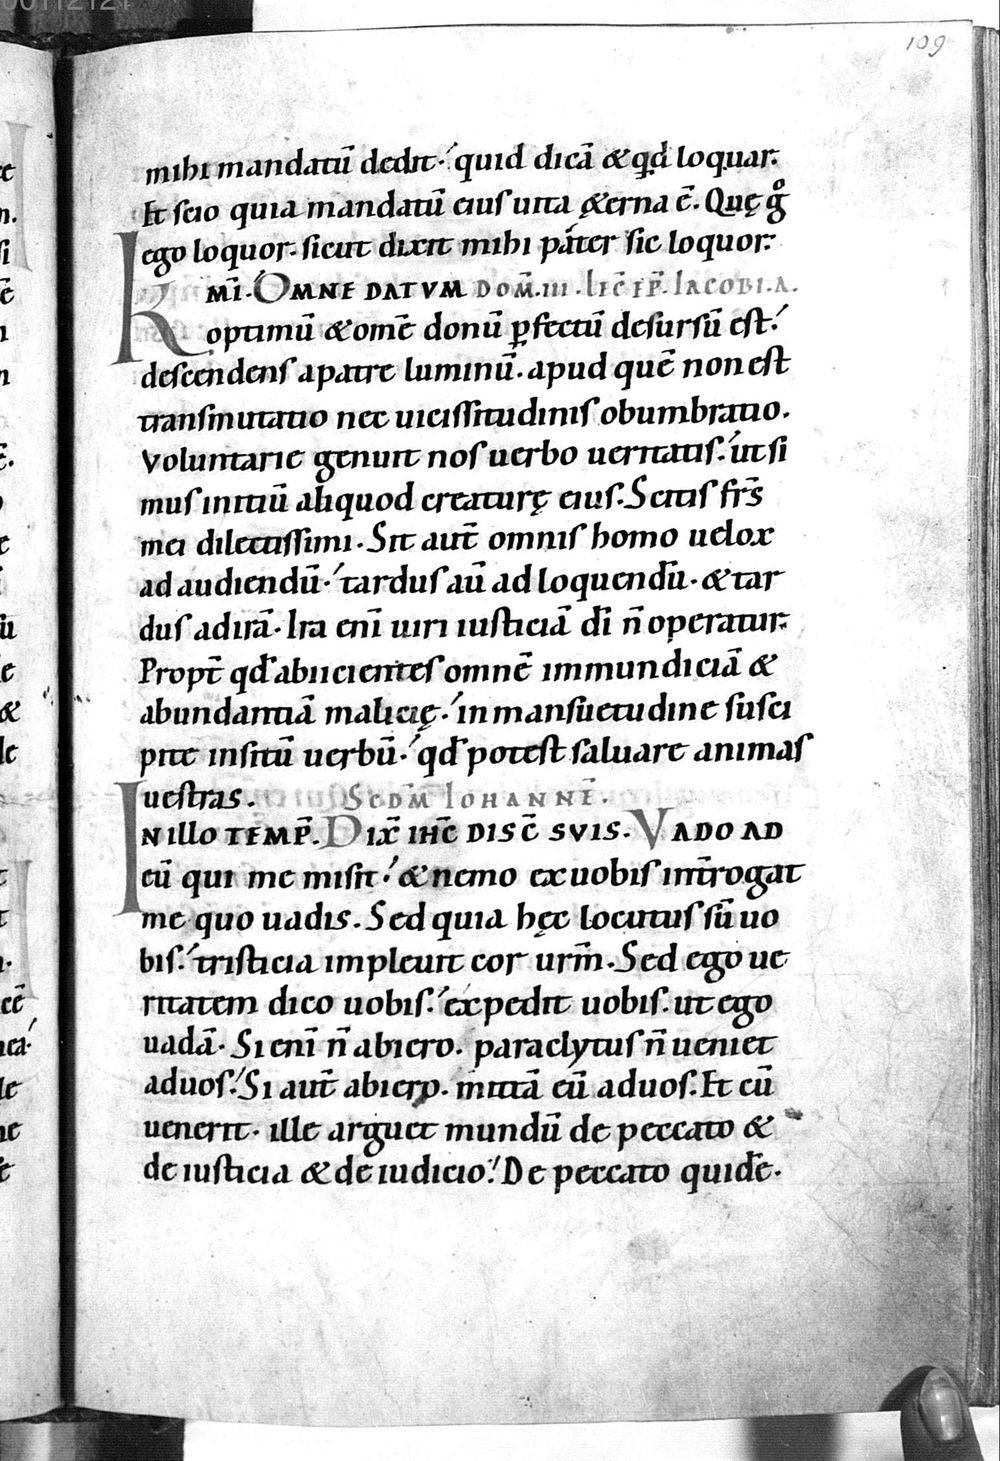 109
mihi mandatū dedit· quid dicā &qđ loquar.
Et scio quia mandatū eius uita &erna ē. Quę gͦ
ego loquor· sicut dixit mihi pater sic loquor.
KMĪ. OMNE DATVM DOM̄.III. LEC̄ EP̄. IACOBI.A.
optimū &om̄e donū ꝑfectū desursū est.
descendens apatre luminū. apud quē non est
transmutatio nec uicissitudinis obumbratio.
Voluntarie genuit nos uerbo ueritatis. ut si
mus initiū aliquod creaturę eius. Scitis frs̄
mei dilectissimi. Sit aut̄ omnis homo uelox
ad audiendū· tardus aū ad loquendū· &tar
dus adirā· Ira enī uiri iusticiā dī n̄ operatur.
Propt̄ qđ abiicientes omnē immundiciā &
abundantiā malicię· in mansuetudine susci
pite insitū uerbū· qđ potest saluare animas
uestras. SCDM̄ IOHANNĒ.
IN illo TEMP̄. DIX̄ IHC̄ DISC̄ SVIS. VADO AD
eū qui me misit· & nemo exuobis int̄rogat
me quo uadis. Sed quia hęc locutus sū uo
bis. tristicia impleuit cor urm̄. Sed ego ue
ritatem dico uobis. expedit uobis. ut ego
uadā. Si enī n̄ abiero. paraclytus n̄ ueniet
aduos. Si aut̄ abiero. mittā eū aduos. Et cū
uenerit· ille arguet mundū de peccato &
de iusticia & de iudicio. De peccato quidē.